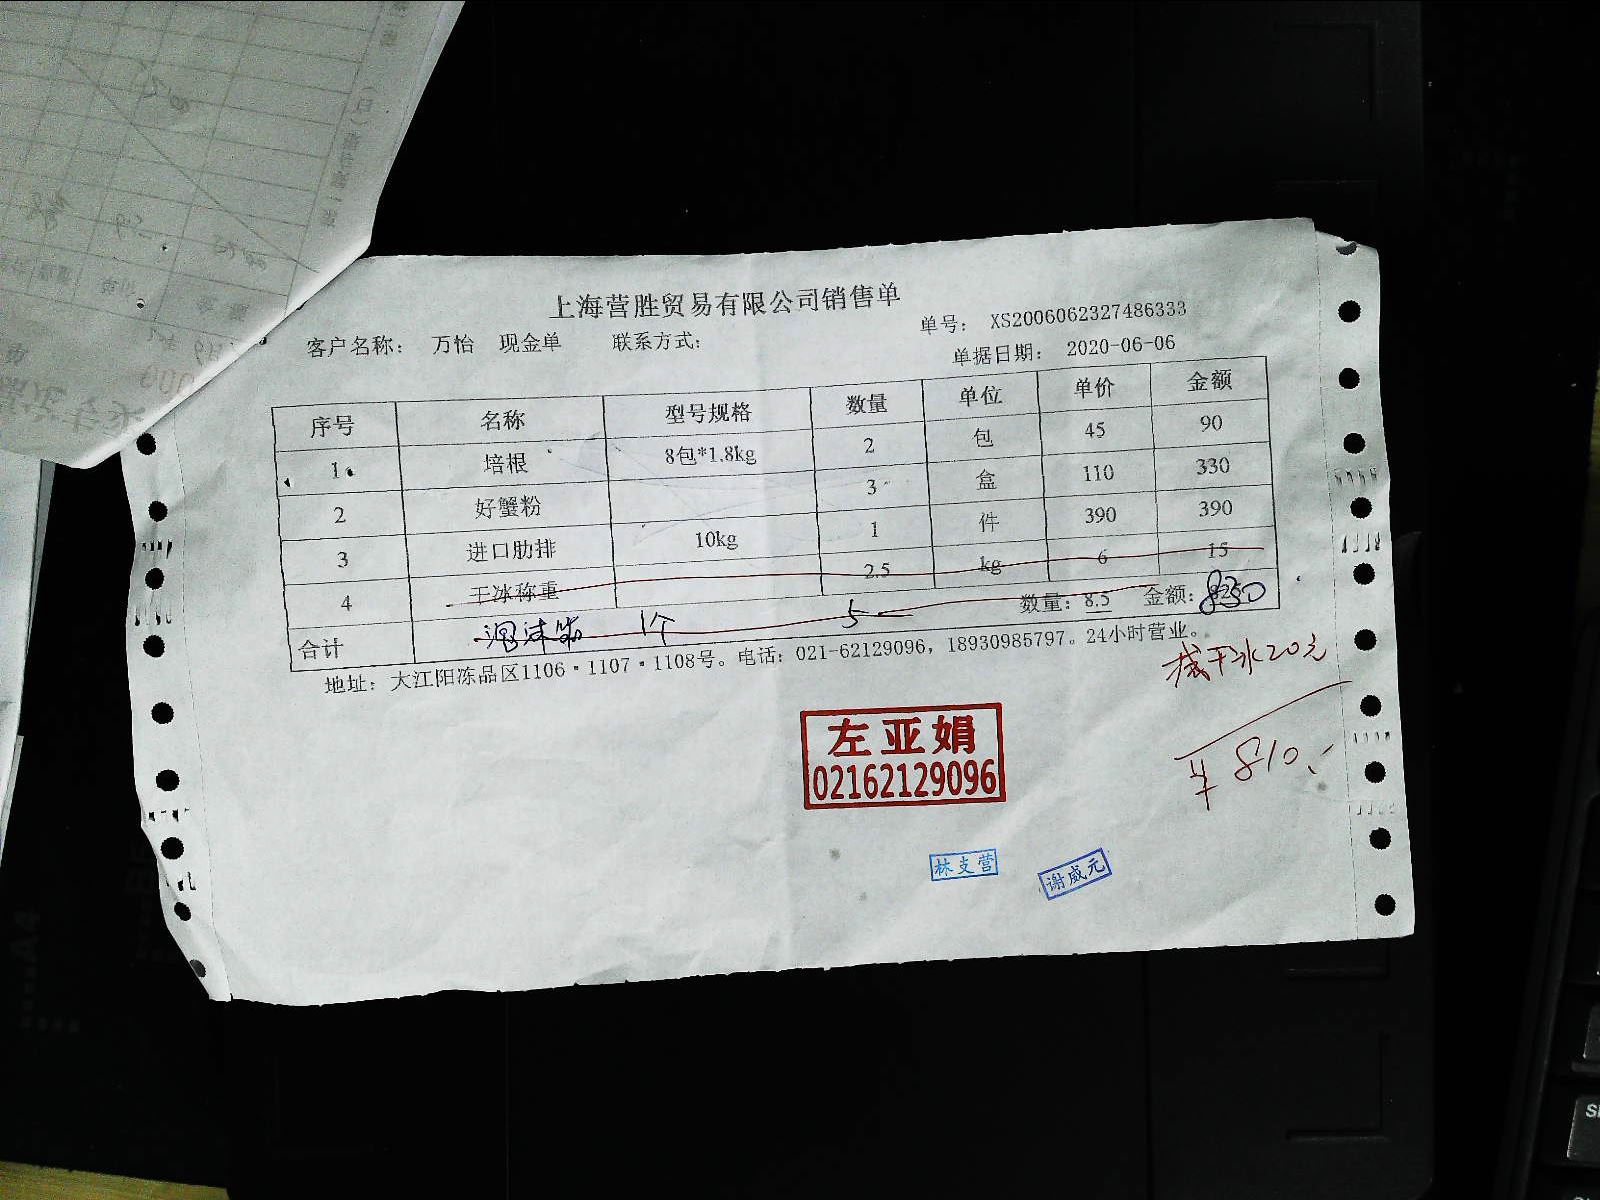 上海营胜贸易有限公司销售单
单号： XS2006062327486333
客户名称： 万怡 现金单 联系方式：
单据日期： 2020-06-06
序号 名称 型号规格 数量 单位 单价 金额
1 培根 8包*1.8kg 2 包 45 90
2 好蟹粉 3 盒 110 330
3 进口肋排 10kg 1 件 390 390
4 干冰称重 2.5 kg 6 15
合计 泡沫箱 1个 5 数量：8.5 金额：830
地址：大江阳冻品区1106·1107·1108号。电话：021-62129096，18930985797。24小时营业。
减干冰20元
¥810.-
左亚娟
02162129096
林支营
谢威元